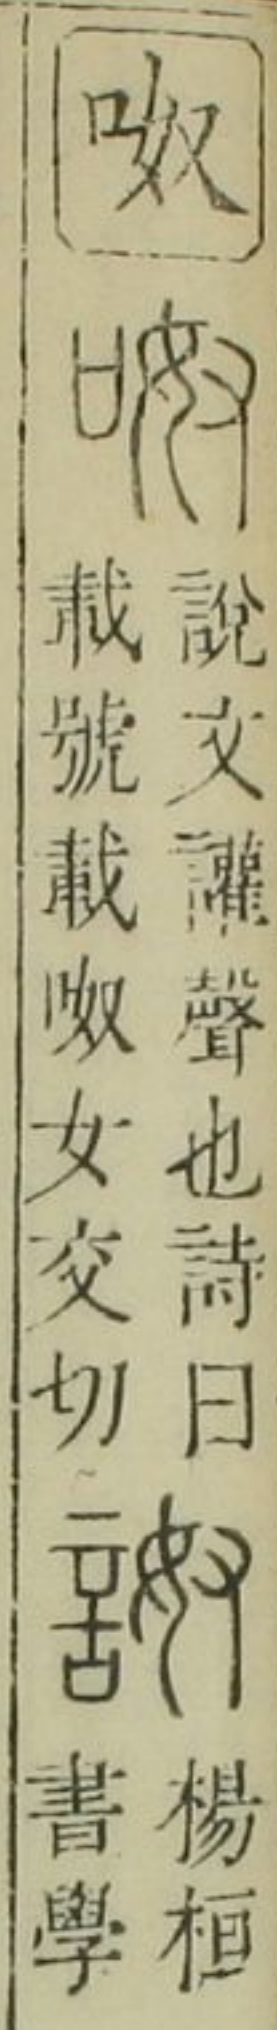 呶
呶
說文讙聲也詩曰
載號載呶女交切
詉
楊桓
書學